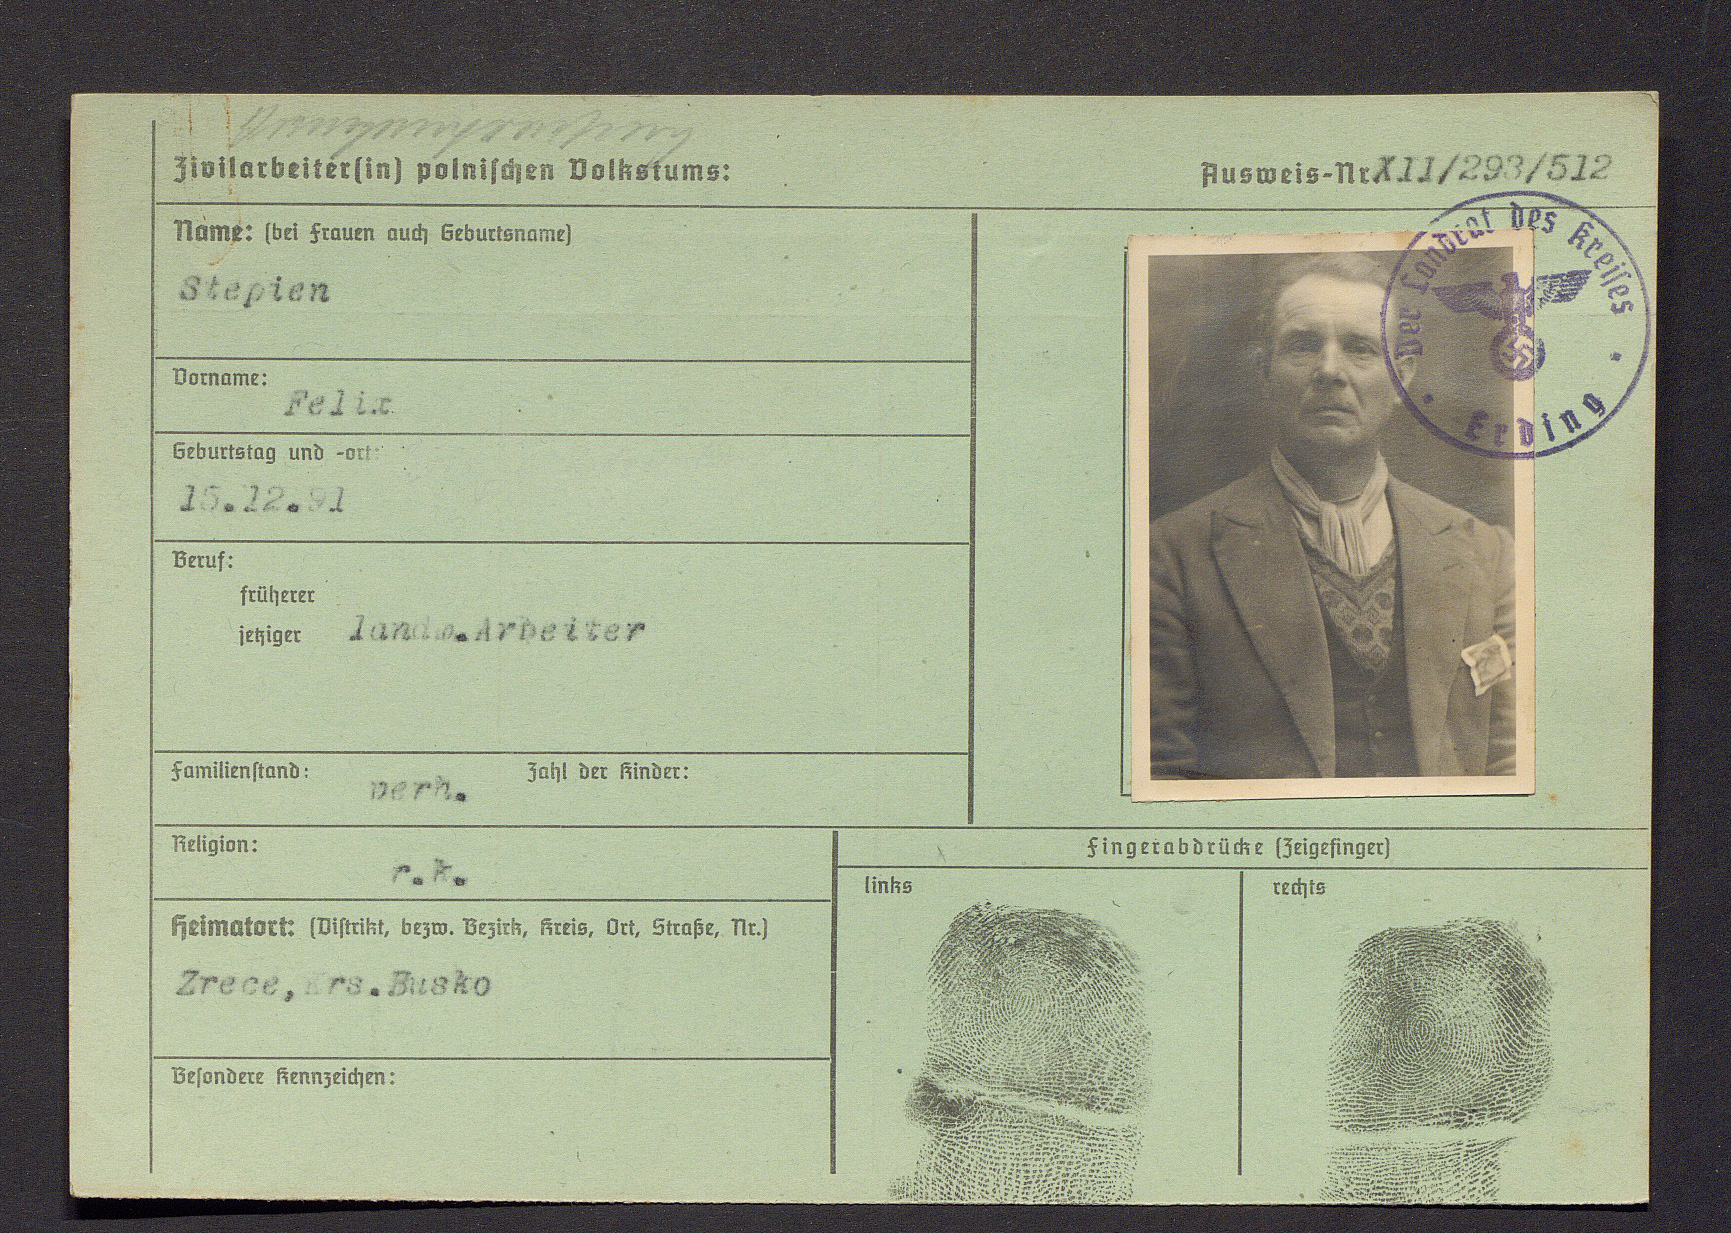 Zivilarbeiter(in) polnischen Volkstums:
Ausweis-Nr XII/293/512
Name: (bei Frauen auch Geburtsname)
Stepien
Vorname:
Felix
Geburtstag und -ort:
15.12.91
Beruf:
früherer
jetziger landw.Arbeiter
Familienstand: verh. Zahl der Kinder:
Religion:
r.k.
Heimatort: (Distrikt, bezw. Bezirk, Kreis, Ort, Straße, Nr.)
Zrece, Krs.Busko
Besondere Kennzeichen:
Der Landrat des Kreises
Erding
Fingerabdrücke (Zeigefinger)
links
rechts